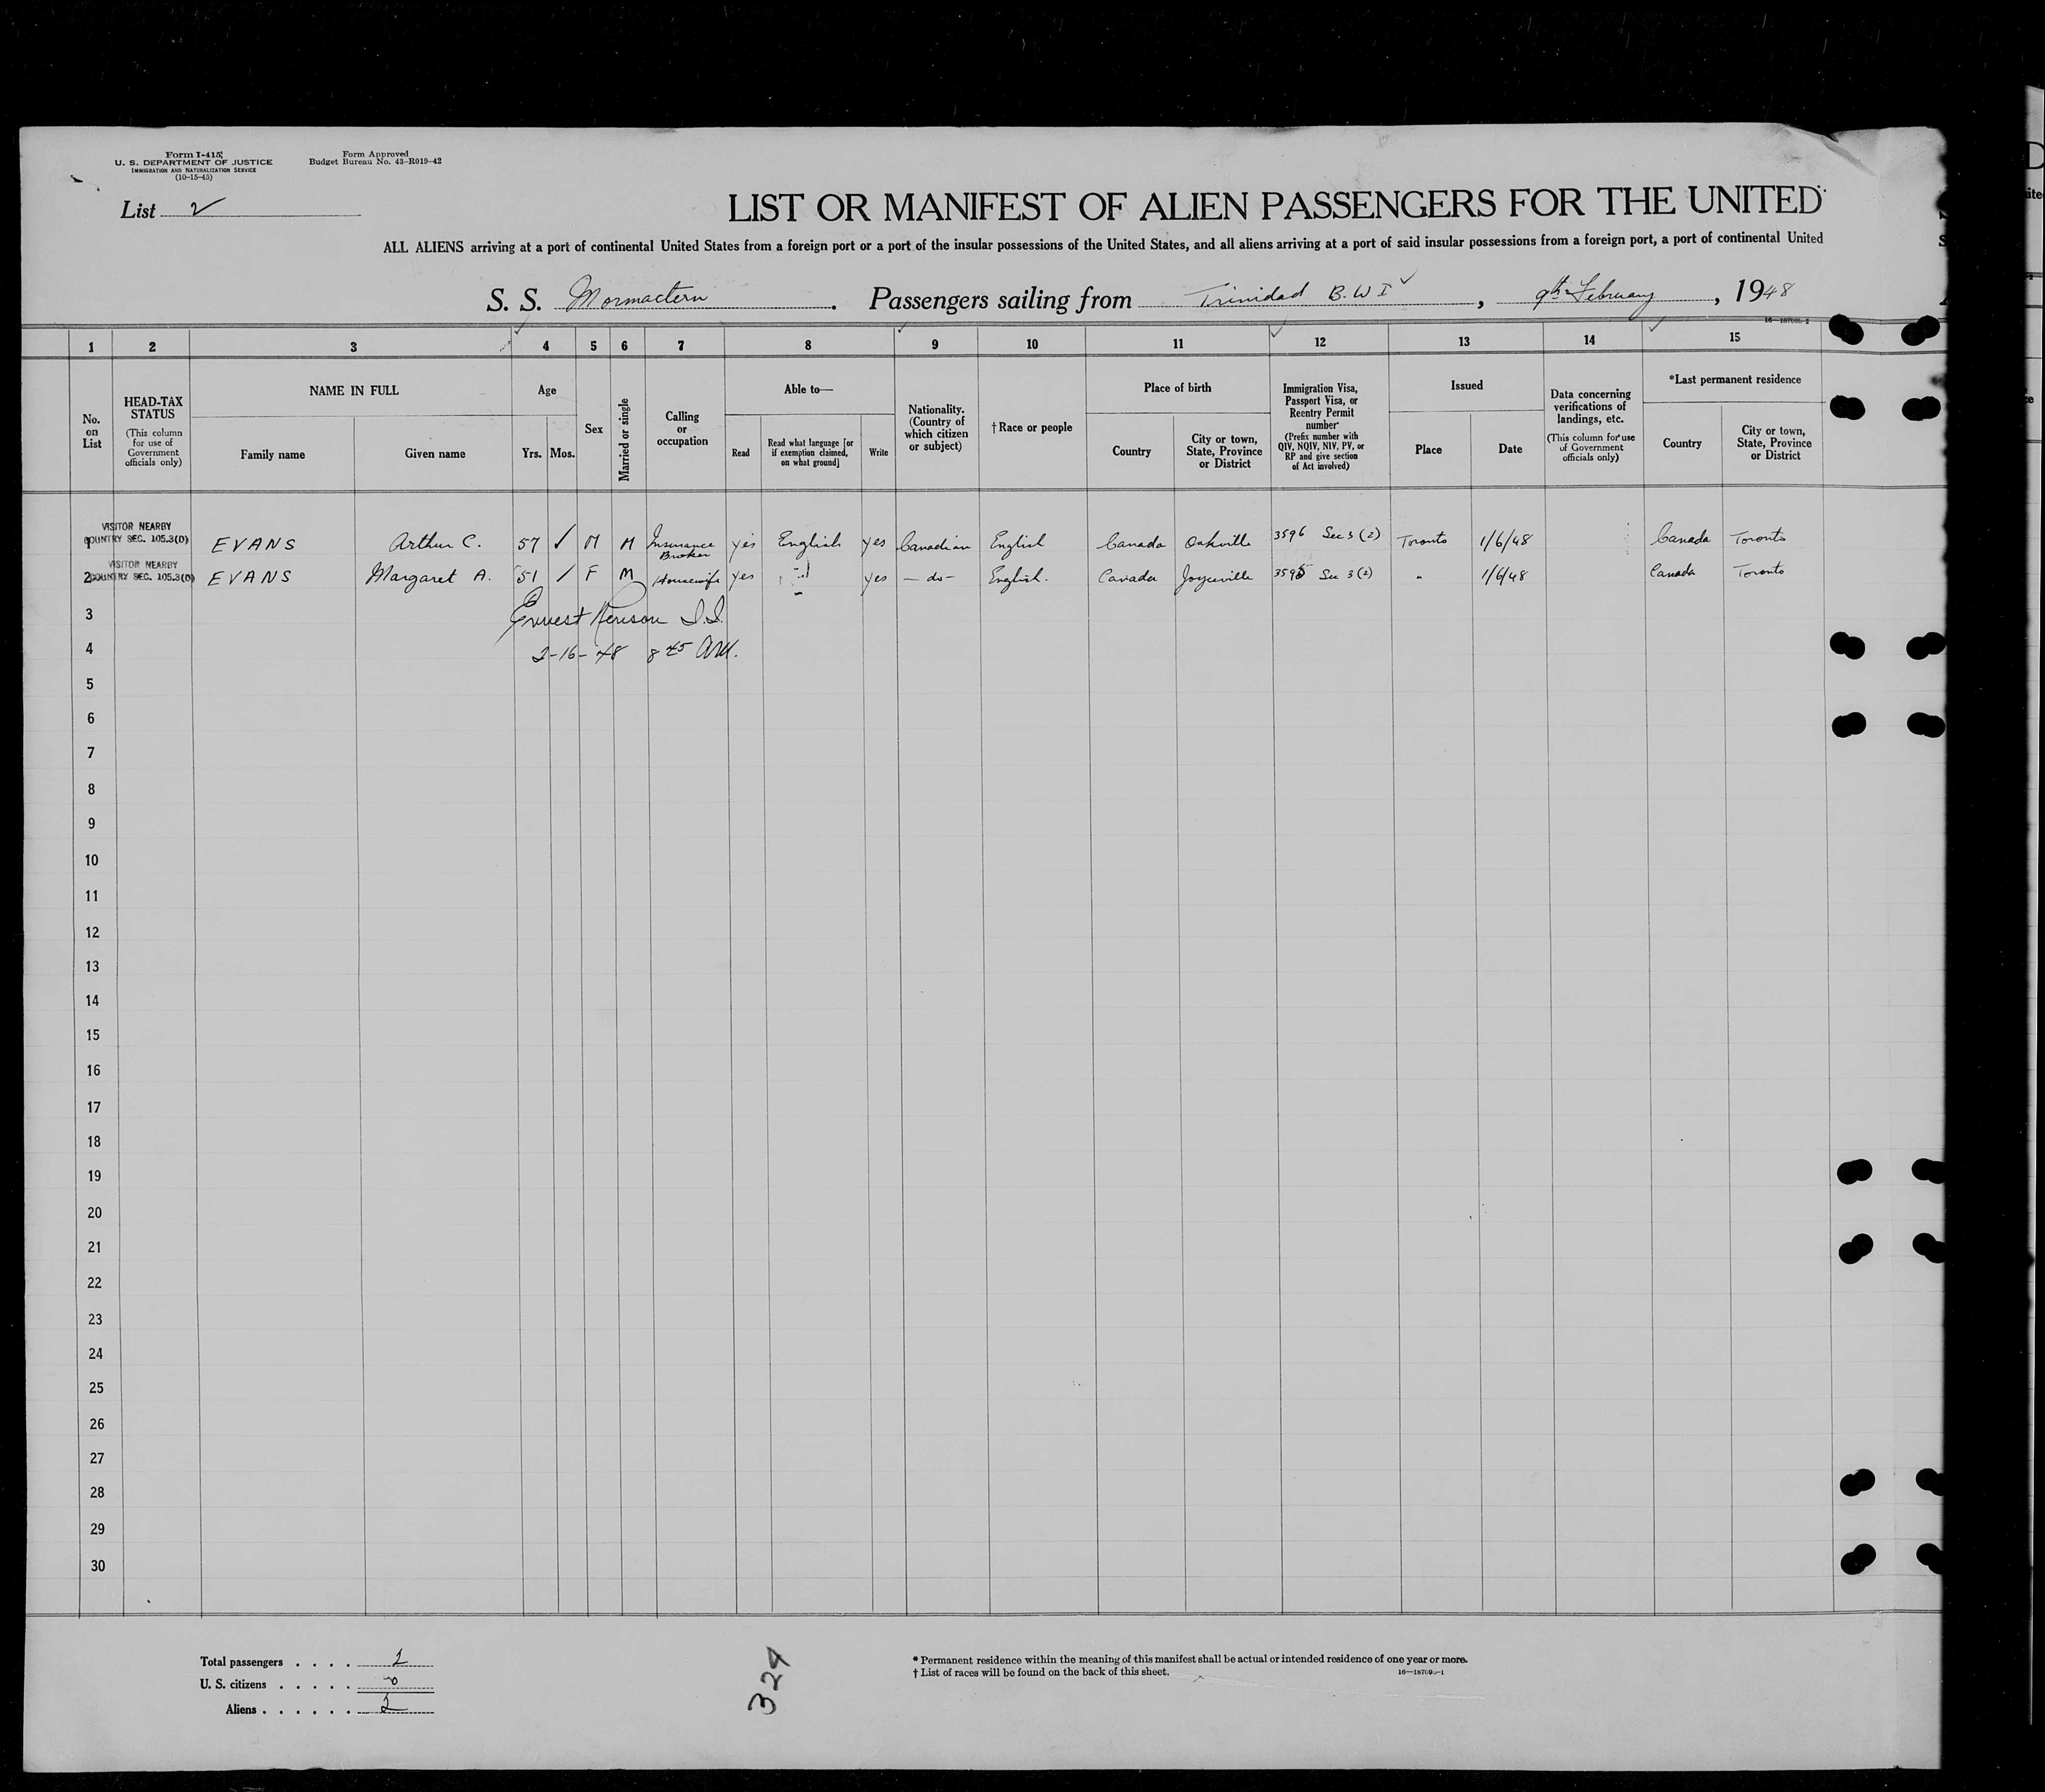 Form I-415
U. S. DEPARTMENT OF JUSTICE
IMMIGRATION AND NATURALIZATION SERVICE
(10-15-45)
Form Approved
Budget Bureau No. 43-R019-42
List 2
LIST OR MANIFEST OF ALIEN PASSENGERS FOR THE UNITED
ALL ALIENS arriving at a port of continental United States from a foreign port or a port of the insular possessions of the United States, and all aliens arriving at a port of said insular possessions from a foreign port, a port of continental United
S. S. Mormactern . Passengers sailing from Trinidad B.W I , 9th February , 1948
1 2 3 4 5 6 7 8 9 10 11 12 13 14 15
No. on List
HEAD-TAX STATUS (This column for use of Government officials only)
NAME IN FULL
Family name Given name
Age
Yrs. Mos.
Sex
Married or single
Calling or occupation
Able to—
Read Read what language [or if exemption claimed, on what ground] Write
Nationality. (Country of which citizen or subject)
†Race or people
Place of birth
Country City or town, State, Province or District
Immigration Visa, Passport Visa, or Reentry Permit number (Prefix number with QIV, NQIV, NIV, PV, or RP and give section of Act involved)
Issued
Place Date
Data concerning verifications of landings, etc. (This column for use of Government officials only)
*Last permanent residence
Country City or town, State, Province or District
VISITOR NEARBY
COUNTRY SEC. 105.3(D)
1 EVANS Arthur C. 57 M M Insurance Broker yes English yes Canadian English Canada Oakville 3596 Sec 3 (2) Toronto 1/6/48 Canada Toronto
VISITOR NEARBY
COUNTRY SEC. 105.3(D)
2 EVANS Margaret A. 51 F M Housewife yes yes — do — English. Canada Joyceville 3595 Sec 3 (2) " 1/6/48 Canada Toronto
3 Ernest I.I.
4 2-16-48 8 45 AM.
5
6
7
8
9
10
11
12
13
14
15
16
17
18
19
20
21
22
23
24
25
26
27
28
29
30
Total passengers . . . . 2
U. S. citizens . . . . . 0
Aliens . . . . . . 2
324
* Permanent residence within the meaning of this manifest shall be actual or intended residence of one year or more.
† List of races will be found on the back of this sheet.